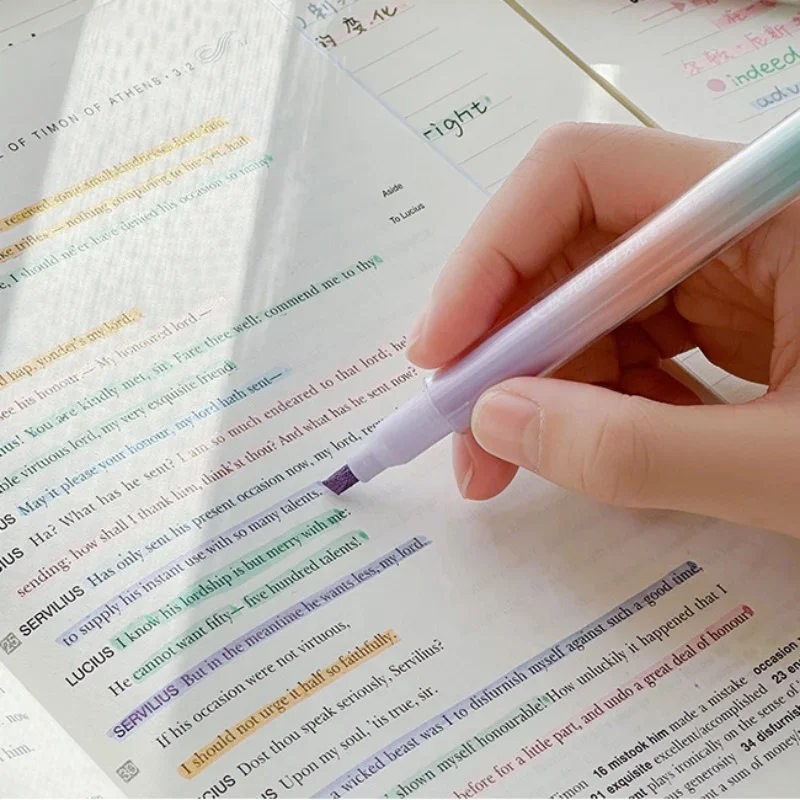 OF TIMON OF ATHENS · 3.2
received some small kindnesses from him,
trifles — nothing comparing to his; yet, had
, I should ne'er have denied his occasion so many
Aside
To Lucius
hap, yonder's my lord.
see his honour. — My honoured lord —
You are kindly met, sir. Fare thee well: commend me to thy
virtuous lord, my very exquisite friend.
May it please your honour, my lord hath sent—
Ha? What has he sent? I am so much endeared to that lord; he
sending: how shall I thank him, think'st thou? And what has he sent now?
SERVILIUS Has only sent his present occasion now, my lord,
25 to supply his instant use with so many talents.
LUCIUS I know his lordship is but merry with me:
He cannot want fifty— five hundred talents!
SERVILIUS But in the meantime he wants less, my lord.
If his occasion were not virtuous,
30 I should not urge it half so faithfully.
Dost thou speak seriously, Servilius?
Upon my soul, 'tis true, sir.
a wicked beast was I to disfurnish myself against such a good time,
shown myself honourable! How unluckily it happened that I
before for a little part, and undo a great deal of honour!
16 mistook him made a mistake occasion
21 exquisite excellent/accomplished 23
plays ironically on the sense of
generosity 34
a sum of money
now
him.
的变化
right
indeed